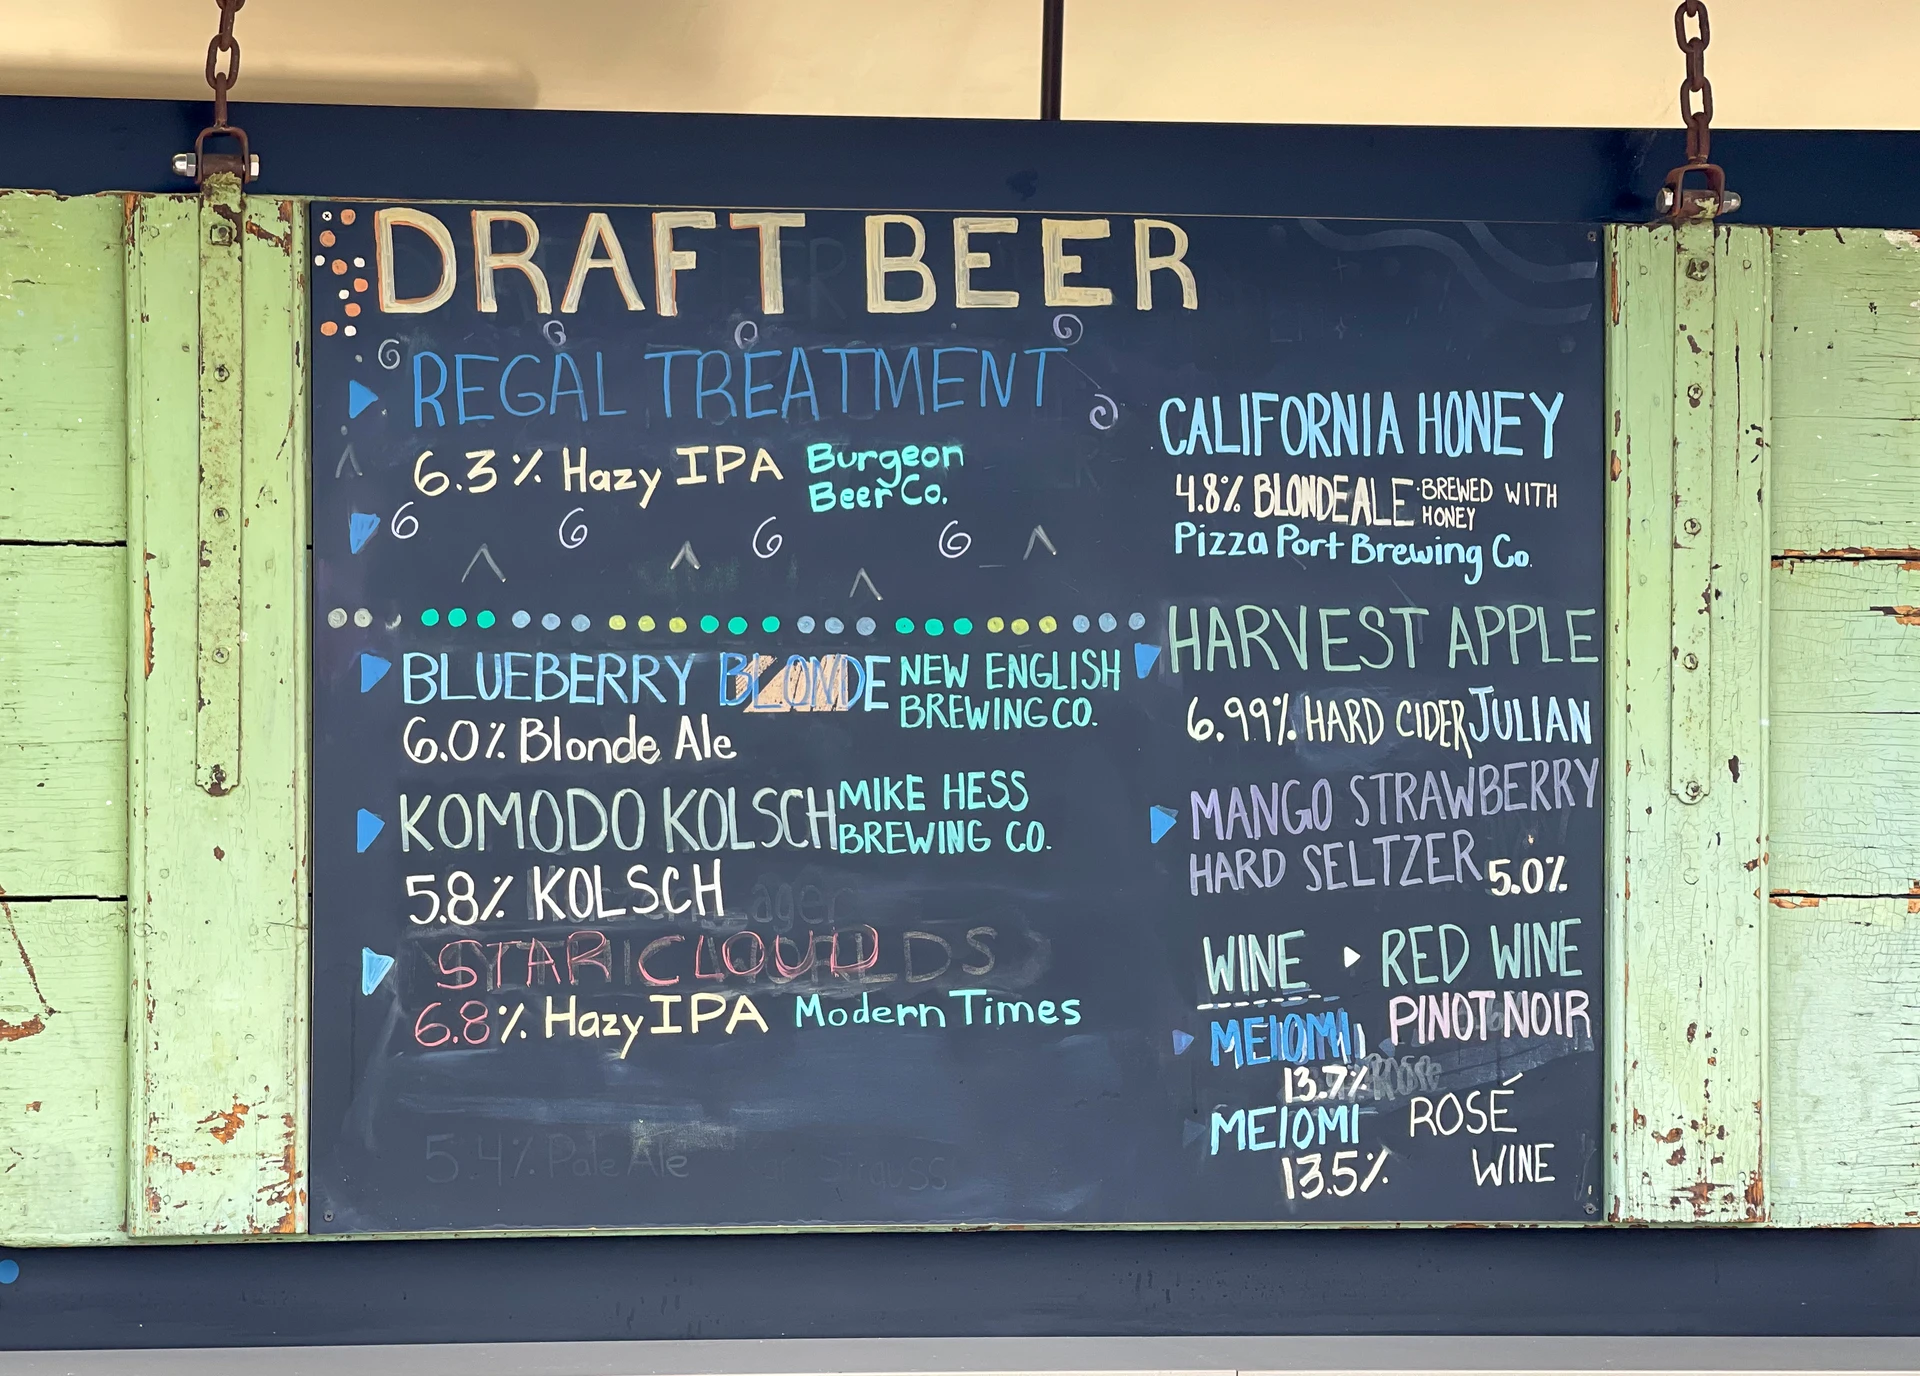 DRAFT BEER
REGAL TREATMENT
6.3% Hazy IPA Burgeon
Beer Co.
BLUEBERRY BLONDE NEW ENGLISH
BREWING CO.
6.0% Blonde Ale
KOMODO KOLSCH MIKE HESS
BREWING CO.
5.8% KOLSCH
STAR CLOUD
6.8% Hazy IPA Modern Times
5.4% Pale Ale
CALIFORNIA HONEY
4.8% BLONDE ALE · BREWED WITH
HONEY
Pizza Port Brewing Co.
HARVEST APPLE
6.99% HARD CIDER JULIAN
MANGO STRAWBERRY
HARD SELTZER 5.0%
WINE RED WINE
MEIOMI PINOT NOIR
13.7% Rose
MEIOMI ROSÉ
13.5% WINE